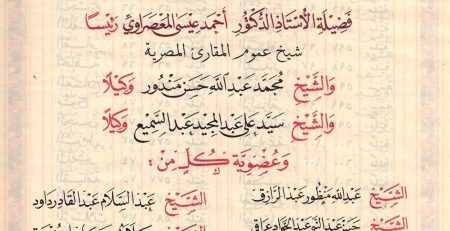 فَضِيلَةِ الأُسْتَاذِ الدُّكْتُورِ أَحْمَد عِيسَى المَعْصَرَاوِي رَئِيسًا
شيخ عموم المقارئ المصرية
وَالشَّيْخِ مُحَمَّد عَبْد اللَّه حَسَن مَنْدُور وَكِيلًا
وَالشَّيْخِ سَيِّد عَلِي عَبْد المَجِيد عَبْد السَّمِيع وَكِيلًا
وَعُضْوِيَّة كُلٍّ مِنْ :
الشَّيْخِ عَبْد اللَّه مَنْظُور عَبْد الرَّازِق الشَّيْخِ عَبْد السَّلَام عَبْد القَادِر دَاوُد
الشَّيْخِ حَسَن عَبْد النَّبِي عَبْد الجَوَاد عِرَاقِي الشَّيْخِ